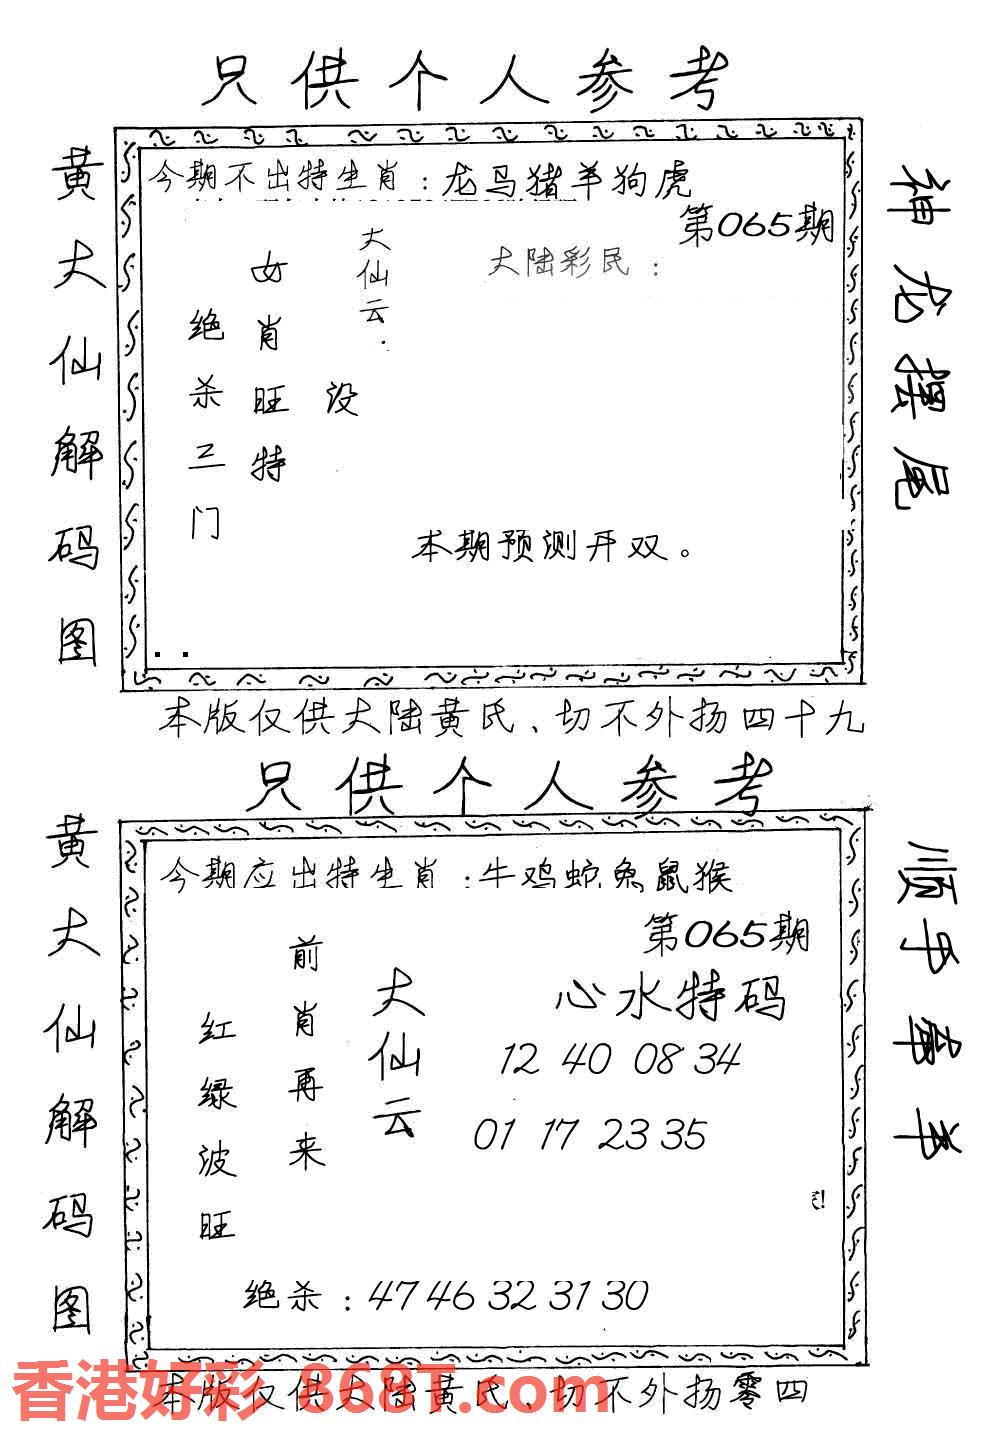 只供个人参考
黄大仙解码图
今期不出特生肖：龙马猪羊狗虎
第065期
大陆彩民：
大仙云：
女肖旺特
绝杀三门
设
本期预测开双。
神龙摆尾
本版仅供大陆黄氏、切不外扬四十九
只供个人参考
黄大仙解码图
今期应出特生肖：牛鸡蛇兔鼠猴
第065期
心水特码
大仙云
前肖再来
红绿波旺
12 40 08 34
01 17 23 35
绝杀：47 46 32 31 30
本版仅供大陆黄氏、切不外扬零四
香港好彩 868T.com